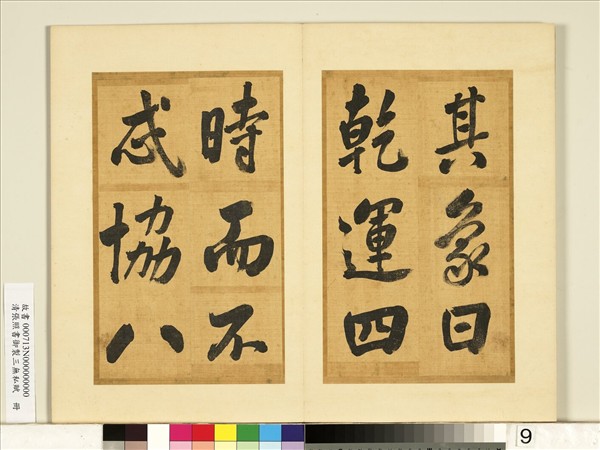 其象曰
乾運四
時而不
忒協八
故書 000713N000000000
清張照書御製三無私賦 冊
9